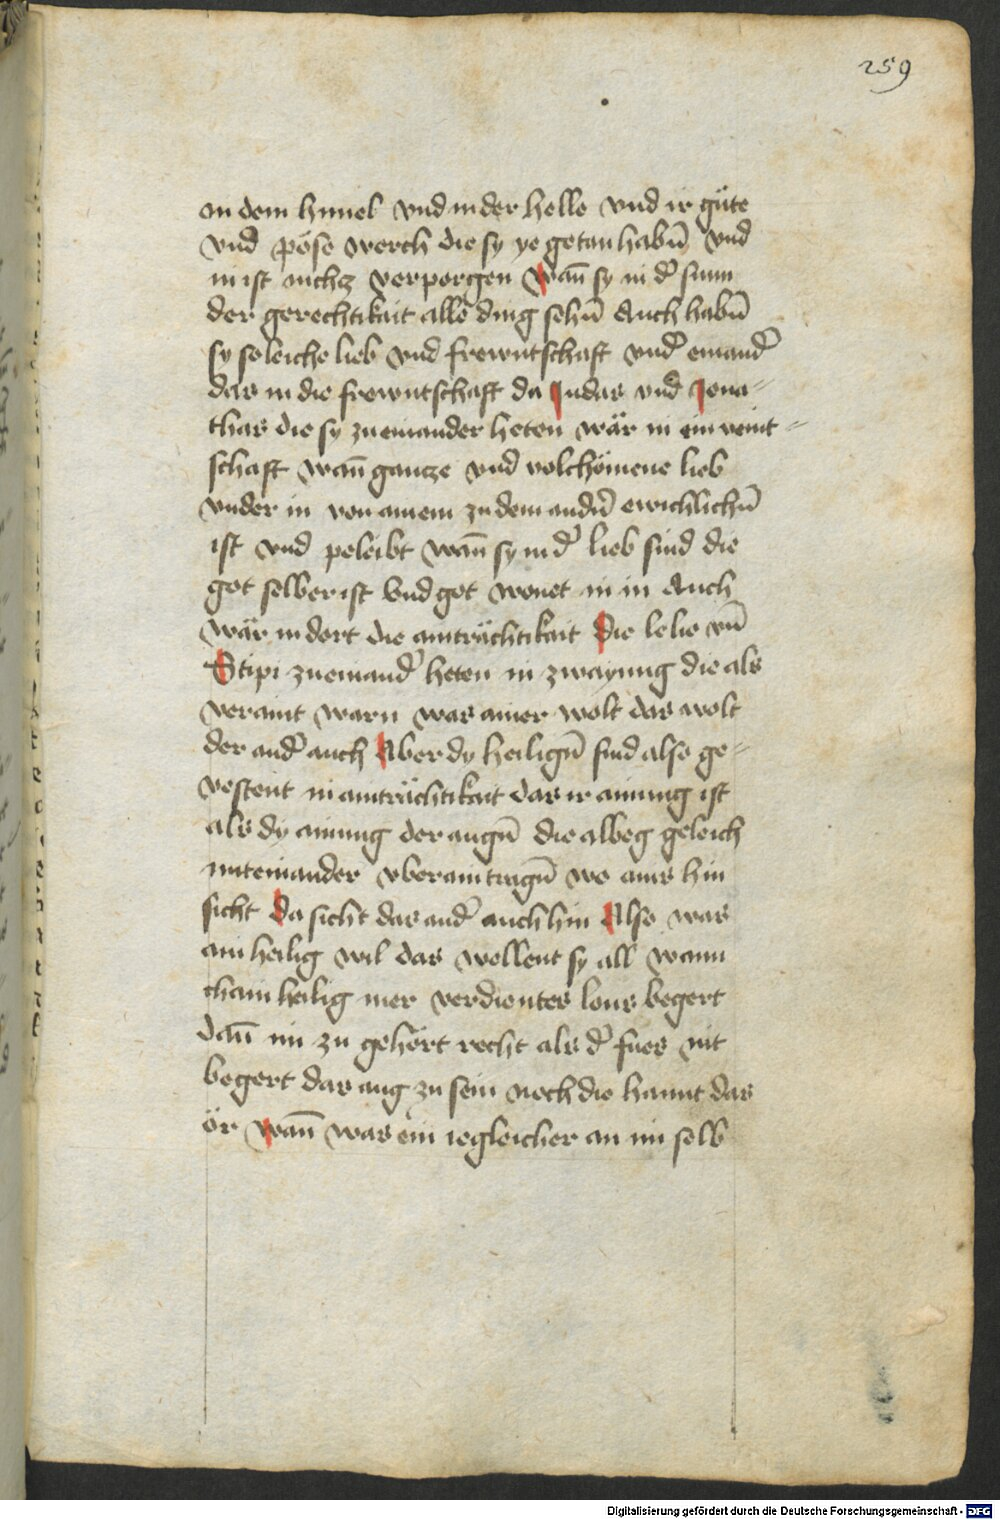 259
in dem himel vnd in der helle vnd ir güte
vnd pöse werch die sy ye getan habn̄ vnd
in ist nichcz verporgen Wan̄ sy in d̓ sunn
der gerechtikait alle ding sehn̄ Auch habn̄
sy soleiche lieb vnd frewntschaft vnd̓ einand̓
das in die frewntschaft da Judas vnd Jona-
thas die sy zu einander heten wär in ein veint-
schaft wan̄ gancze vnd volchömene lieb
vnder in von ainem zu dem andn̄ ewichlichn̄
ist vnd peleibt wan̄ sy in d̓ lieb sind die
got selber ist Vnd got wonet in in Auch
wär in dort die ainträchtikait Die lelie vn̄
Stipi zu einand̓ heten in zwayung die als
veraint warn was ainer wolt das wolt
der and̓ auch Aber dy heilign̄ sind also ge-
vestent in ainträchtikait das ir ainung ist
als dy ainung der augn̄ die albeg geleich
miteinander vberain tragn̄ wo ains hin
sicht Da sicht das and̓ auch hin Also was
ain heilig wil das wellent sy all wann
chain heilig mer verdientes lons begert
dan̄ im zu gehört recht als d̓ fues nit
begert das aug zu sein noch die hannt das
ör wan̄ was ein iegleicher an im selb
Digitalisierung gefördert durch die Deutsche Forschungsgemeinschaft - DFG